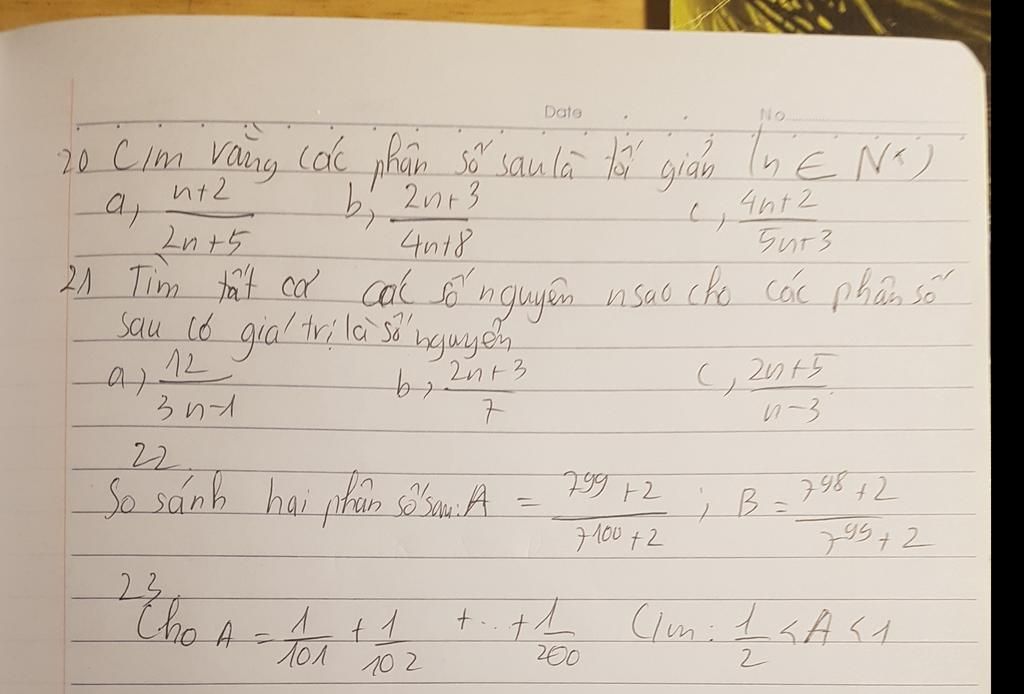 Date No
20 C/m rằng các phân số sau là tối giản (n ∈ N*)
a, n+2/2n+5 b, 2n+3/4n+8 c, 4n+2/5n+3
21 Tìm tất cả các số nguyên n sao cho các phân số
sau có giá trị là số nguyên
a, 12/3n-1 b, 2n+3/7 c, 2n+5/n-3
22
So sánh hai phân số sau: A = 7^99+2/7^100+2 ; B = 7^98+2/7^99+2
23,
Cho A = 1/101 + 1/102 + ... + 1/200 C/m: 1/2 < A < 1